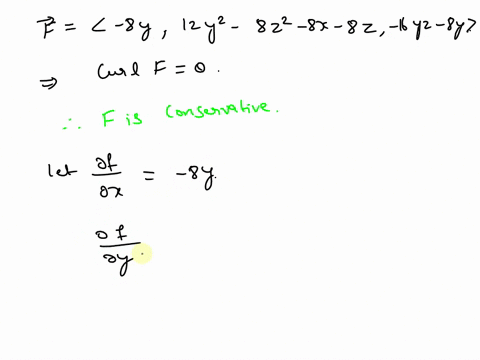 F⃗ = < -8y , 12y² - 8z² -8x -8z, -16yz -8y>
⇒ Curl F = 0 .
∴ F is Conservative.
let ∂f/∂x = -8y.
∂f/∂y